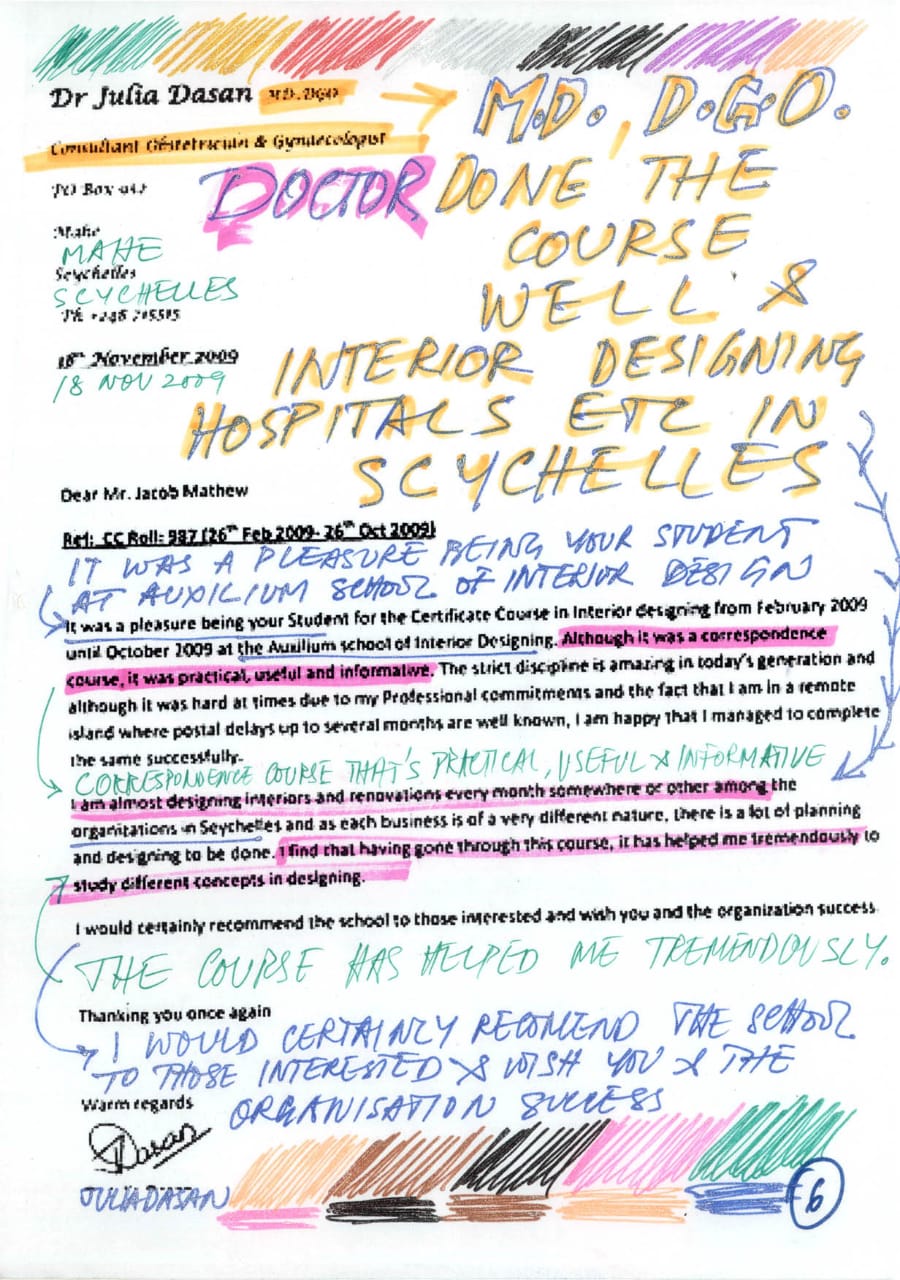 Dr Julia Dasan M.D. DGO
M.D., D.G.O.
Consultant Obstetrician & Gynaecologist
DOCTOR DONE THE
PO Box
COURSE
Mahe
MAHE
Seychelles
SCYCHELLES
WELL &
Ph +248
18th November 2009
18 NOV 2009
INTERIOR DESIGNING
HOSPITALS ETC IN
SCYCHELLES
Dear Mr. Jacob Mathew
Ref: CC Roll: 987 (26th Feb 2009- 26th Oct 2009)
IT WAS A PLEASURE BEING YOUR STUDENT
AT AUXILIUM SCHOOL OF INTERIOR DESIGN
It was a pleasure being your Student for the Certificate Course in Interior designing from February 2009
until October 2009 at the Auxilium school of Interior Designing. Although it was a correspondence
course, it was practical, useful and informative. The strict discipline is amazing in today's generation and
although it was hard at times due to my Professional commitments and the fact that I am in a remote
island where postal delays up to several months are well known, I am happy that I managed to complete
the same successfully.
CORRESPONDENCE COURSE THAT'S PRACTICAL, USEFUL & INFORMATIVE
I am almost designing interiors and renovations every month somewhere or other among the
organizations in Seychelles and as each business is of a very different nature, there is a lot of planning
and designing to be done. I find that having gone through this course, it has helped me tremendously to
study different concepts in designing.
I would certainly recommend the school to those interested and wish you and the organization success.
THE COURSE HAS HELPED ME TREMENDOUSLY.
Thanking you once again
I WOULD CERTAINLY RECOMEND THE SCHOOL
TO THOSE INTERESTED & WISH YOU & THE
Warm regards
ORGANISATION SUCCESS
Dasan
JULIA DASAN
6